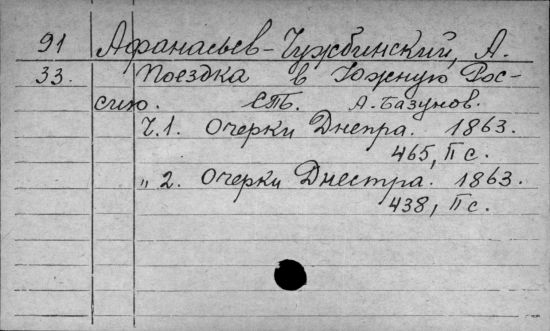 91 Афанасьев-Чужбинский, А.
33. Поездка в Южную Рос-
сию. СПб. А. Базунов.
Ч.1. Очерки Днепра. 1863.
465, II с.
" 2. Очерки Днестра. 1863.
438, II с.